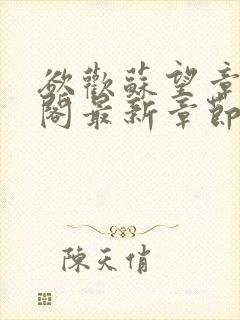 欲歡蘇望章
閣最新章節
陳天俏